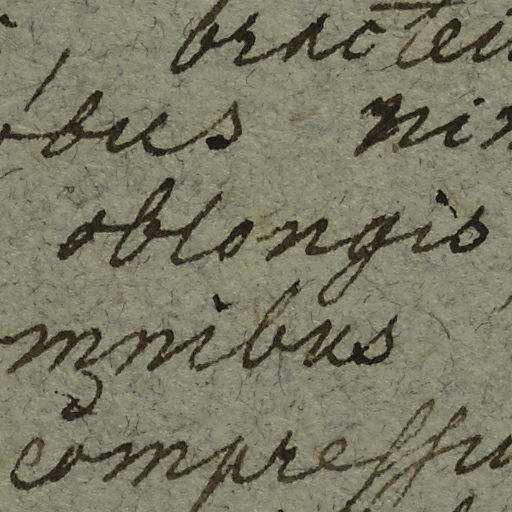 bractei
obus nin
oblongis
omnibus
compressu